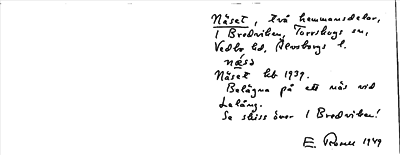 Näset, två hemmansdelar,
1 Bredviken, Torrskogs sn,
Vedbo hd, Älvsborgs l.
næ̀sə
Näset hb 1939.
Belägna på ett näs vid
Lelång.
Se skiss över 1 Bredviken!
E. 1949